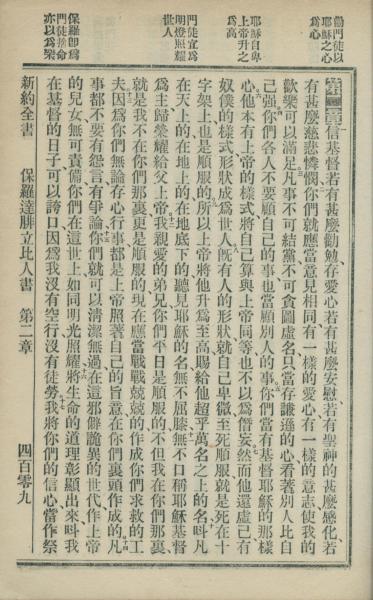 勸門徒以
耶穌之心
爲心
耶穌自卑
上帝升之
爲高
門徒宜爲
明燈照耀
世人
保羅卽爲
門徒捨命
亦以爲樂
第二章 信基督若有甚麼勸勉在愛心若有甚麼安慰若有聖神的甚麼感化若
有甚麼慈悲憐憫你們就應當意見相同有一樣的愛心有一樣的意志使我的
歡樂可以滿足凡事不可結黨不可貪圖虛名只當存謙遜的心看著別人比自
己强你們各人不要顧自己的事也當顧別人的事你們當有基督耶穌的那樣
心他本有上帝的樣式將自己算與上帝同等也不以爲僭妄然而他還虛己有
奴僕的樣式形狀成爲世人旣有人的形狀就自己卑微至死順服就是死在十
字架上也是順服的所以上帝將他升爲至高賜給他超乎萬名之上的名呌凡
在天上的在地上的在地底下的聽見耶穌的名無不屈膝無不口稱耶穌基督
爲主歸榮耀給父上帝我親愛的弟兄你們平日是順服的不但我在你們那裏
就是我不在你們那裏更是順服的現在應當戰戰兢兢的作成你們求救的工
夫因爲你們無論存心行事都是上帝照著自己的旨意在你們裏頭作成的凡
事都不要有怨言有爭論你們就可以清潔無過在這邪僻詭異的世代作上帝
的兒女無可責備你們在這世上如同明光照耀將生命的道理彰顯出來呌我
在基督的日子可以誇口因爲我沒有空行沒有徒勞我將你們的信心當作祭
新約全書 保羅達腓立比人書 第二章 四百零九